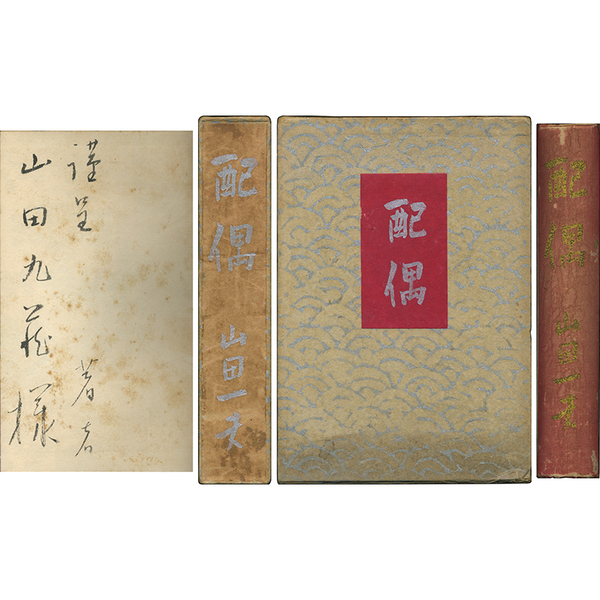 謹呈 著者
山田九 様
配偶 山田一夫
配偶
配偶 山田一夫